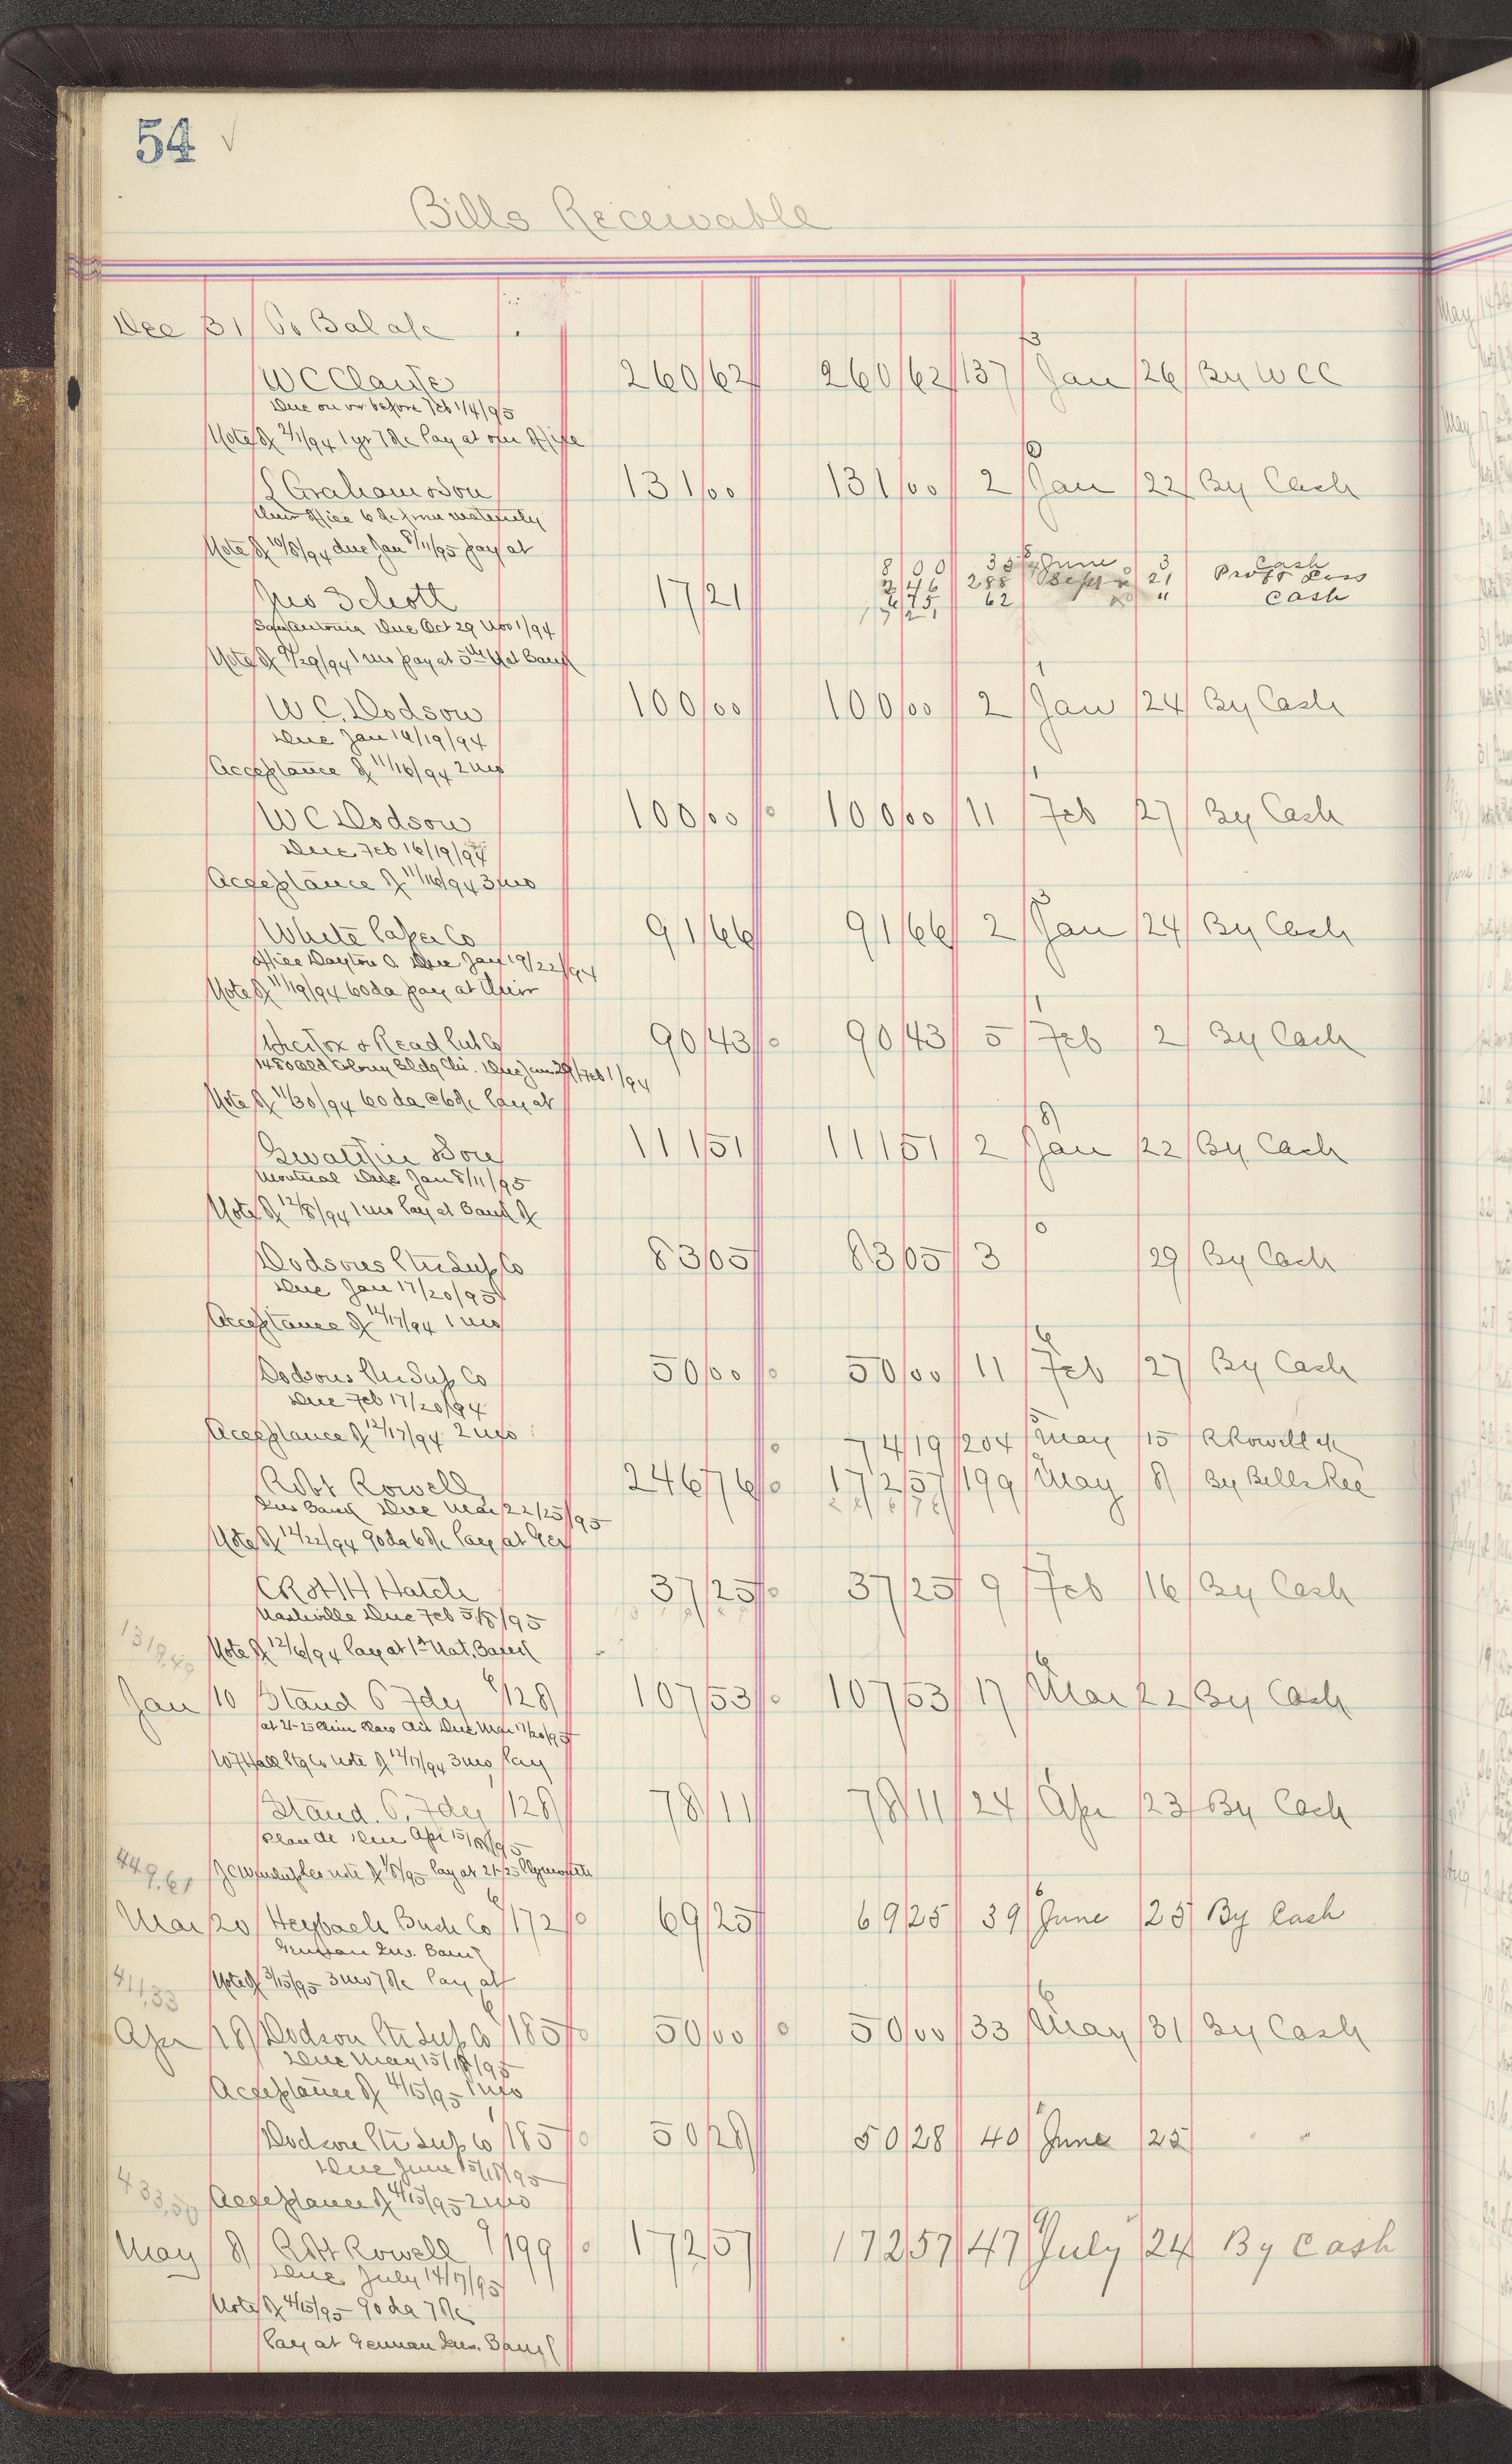 54 ✓
Bills Receivable
Dec 31
W C
260 62 260 62 137 Jan 26 By W C C
3
Due on or before Feb 1/4/95
Note of 2/1/94 1 yr 7% Pay at our office
Graham & Son 131 00 131 00 2 Jan 22 By Cash
office 6% from maturity
Note of 10/8/94 due Jan 8/11/95 pay at
8 00 35 June 3 Cash
Jno Schott 17 21 2 46 288 Sept 21 Profit Loss
6 75 62 " Cash
17 21
San Antonio Due Oct 29 Nov 1/94
Note of 9/29/94 1 mo pay at 5th Nat Bank
1
W C. Dodson 100 00 100 00 2 Jan 24 By Cash
Due Jan 16/19/94
Acceptance of 11/16/94 2 mo
1
W C Dodson 100 00 100 00 11 Feb 27 By Cash
Due Feb 16/19/94
Acceptance of 11/16/94 3 mo
3
White Paper Co 91 66 91 66 2 Jan 24 By Cash
office Dayton O. Due Jan 19/22/94
Note of 11/19/94 60 da pay at their
1
& Read Pub Co 90 43 90 43 5 Feb 2 By Cash
Old Colony Bldg Chi. Due Jan 29/Feb 1/94
Note of 11/30/94 60 da @ 6% Pay at
8
111 51 111 51 2 Jan 22 By Cash
Montreal Due Jan 8/11/95
Note of 12/8/94 1 mo Pay at Bank of
0
Dodsons Ptr Sup Co 83 05 83 05 3 29 By Cash
Due Jan 17/20/95
Acceptance of 12/17/94 1 mo
6
Dodsons Ptr Sup Co 50 00 50 00 11 Feb 27 By Cash
Due Feb 17/20/94
Acceptance of 12/17/94 2 mo
5
74 19 204 May 15 R Rowell
Robt Rowell 246 76 172 57 199 May 8 By Bills Rec
246 76
Ins Bank Due Mar 22/25/95
Note of 12/22/94 90 da 6% Pay at Ger
C R & H H Hatch 37 25 37 25 9 Feb 16 By Cash
Nashville Due Feb 5/8/95
Note of 12/6/94 Pay at 1st Nat. Bank
1319.40
6 6
Jan 10 Stand 128 107 53 107 53 17 Mar 22 By Cash
at 21-25 Due Mar 17/20/95
note of 12/17/94 3 mo Pay
1
Stand. 128 78 11 78 11 24 Apr 23 By Cash
Due Apr 15/18/95
note of 1/8/95 Pay at 21-25 Plymouth
449.61
6 6
Mar 20 Heybach Bush Co 172 69 25 69 25 39 June 25 By Cash
German Ins. Bank
Note of 3/15/95 3 mo 7% Pay at
411.33
6 6
Apr 18 Dodson Ptr Sup Co 185 50 00 50 00 33 May 31 By Cash
Due May 15/18/95
Acceptance of 4/15/95 1 mo
1
Dodson Ptr Sup Co 185 50 28 50 28 40 June 25 " "
Due June 15/18/95
Acceptance of 4/15/95 2 mo
433.50
9 9
May 8 Robt Rowell 199 172 57 172 57 47 July 24 By Cash
Due July 14/17/95
Note of 4/15/95 90 da 7%
Pay at German Ins. Bank